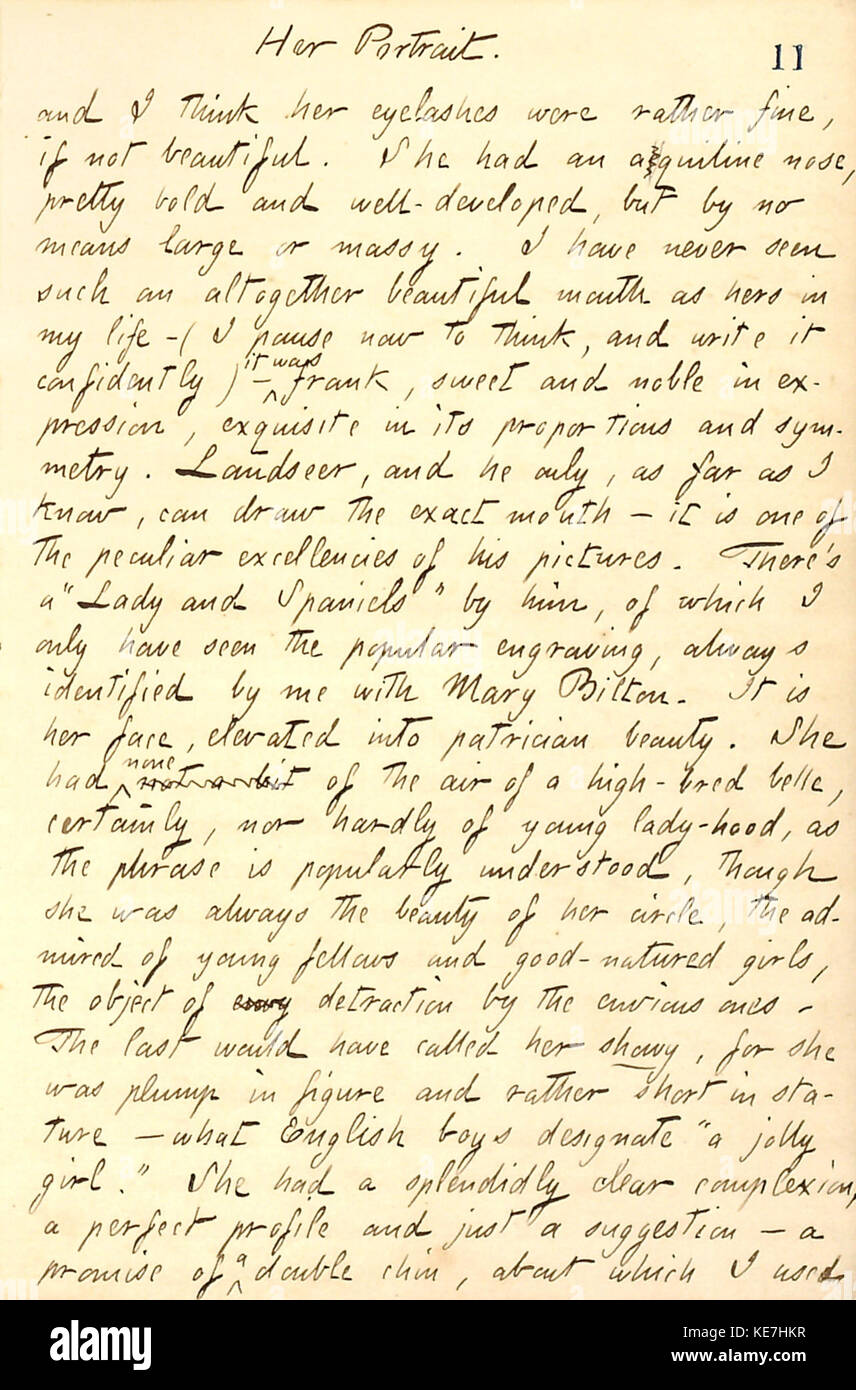 Her Portrait.
11
and I think her eyelashes were rather fine,
if not beautiful. She had an aquiline nose,
pretty bold and well-developed, but by no
means large or massy. I have never seen
such an altogether beautiful mouth as hers in
my life - ( I pause now to think, and write it
confidently ) - it was frank, sweet and noble in ex-
pression, exquisite in its proportions and sym-
metry. Landseer, and he only, as far as I
know, can draw the exact mouth - it is one of
the peculiar excellencies of his pictures. There's
a "Lady and Spaniels" by him, of which I
only have seen the popular engraving, always
identified by me with Mary Bilton. It is
her face, elevated into patrician beauty. She
had none not a bit of the air of a high-bred belle,
certainly, nor hardly of young lady-hood, as
the phrase is popularly understood, though
she was always the beauty of her circle, the ad-
mired of young fellows and good-natured girls,
the object of envy detraction by the envious ones.
The last would have called her showy, for she
was plump in figure and rather short in sta-
ture - what English boys designate "a jolly
girl." She had a splendidly clear complexion,
a perfect profile and just a suggestion - a
promise of a double chin, about which I used
alamy
Image ID: KE7HKR
www.alamy.com